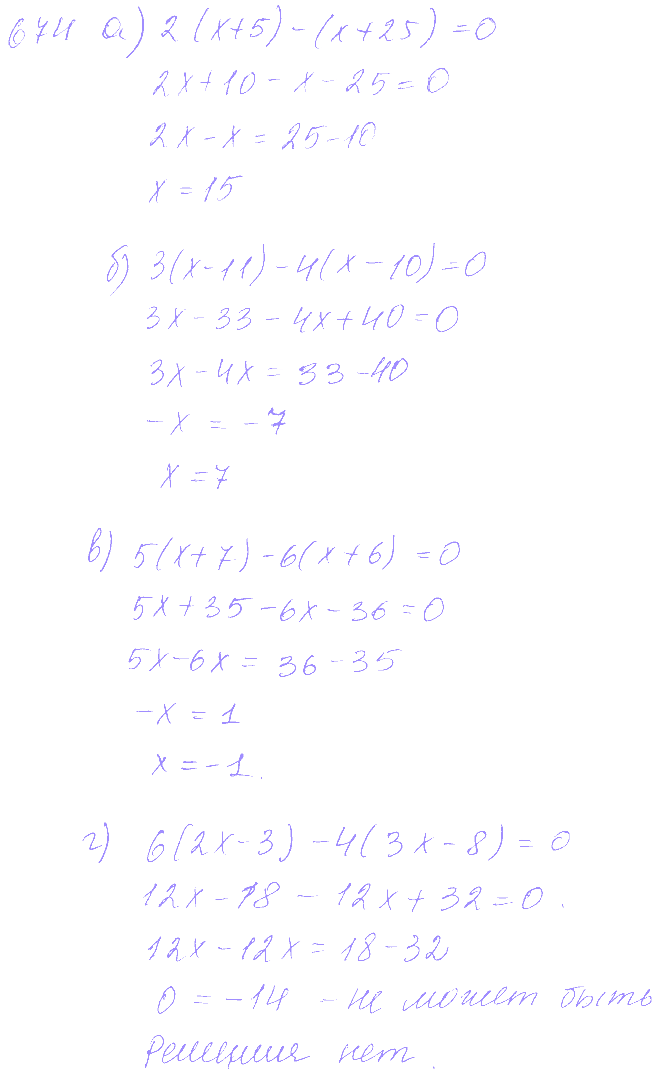 674 а) 2(x+5)-(x+25)=0
2x+10-x-25=0
2x-x=25-10
x=15
б) 3(x-11)-4(x-10)=0
3x-33-4x+40=0
3x-4x=33-40
-x=-7
x=7
в) 5(x+7)-6(x+6)=0
5x+35-6x-36=0
5x-6x=36-35
-x=1
x=-1.
г) 6(2x-3)-4(3x-8)=0
12x-18-12x+32=0.
12x-12x=18-32
0=-14 - не может быть
Решения нет.